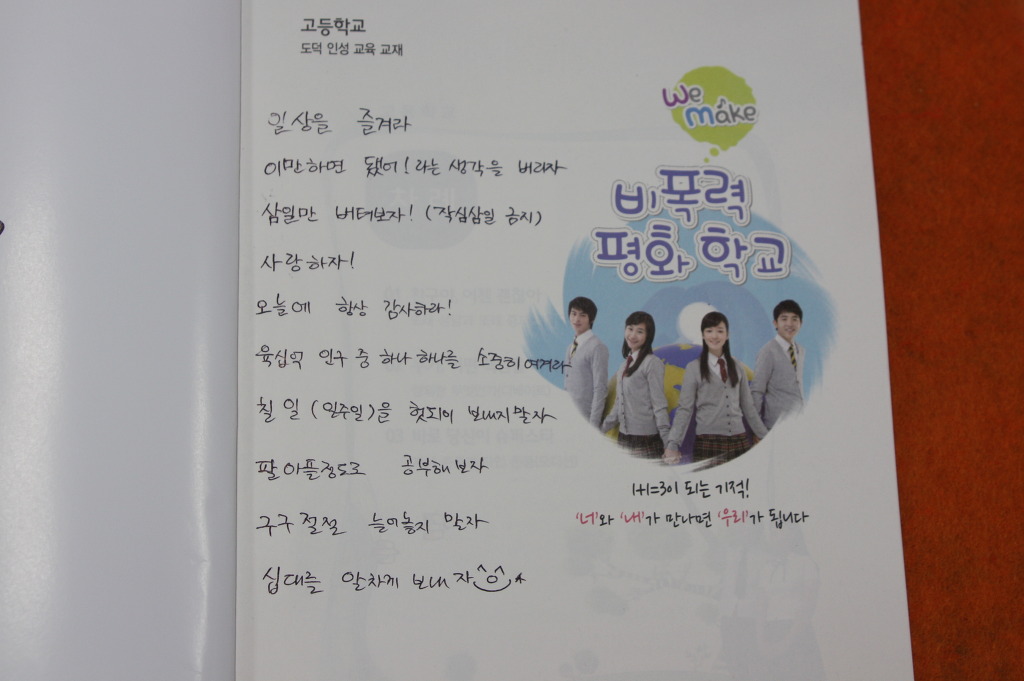 고등학교
도덕 인성 교육 교재
We make
비폭력
평화 학교
일상을 즐겨라
이만하면 됐어! 라는 생각을 버리자
삼일만 버텨보자! (작심삼일 금지)
사랑하자!
오늘에 항상 감사하라!
육십억 인구 중 하나 하나를 소중히 여겨라
칠 일 (일주일)을 헛되이 보내지말자
팔 아플정도로 공부해보자
구구절절 늘어놓지 말자
십대를 알차게 보내자
1+1=3이 되는 기적!
'너'와 '내'가 만나면 '우리'가 됩니다